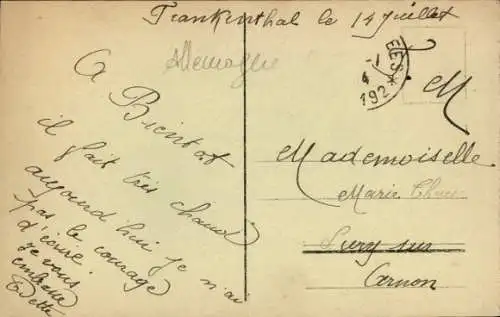 Frankenthal le 14 Juillet
Allemagne
EES *
192
A Bientot
il fait très chaud
aujourd'hui je n'ai
pas le courage
d'écrire.
je vous
embrasse
Odette
M
Mademoiselle
Marie
Lury sur
Arnon